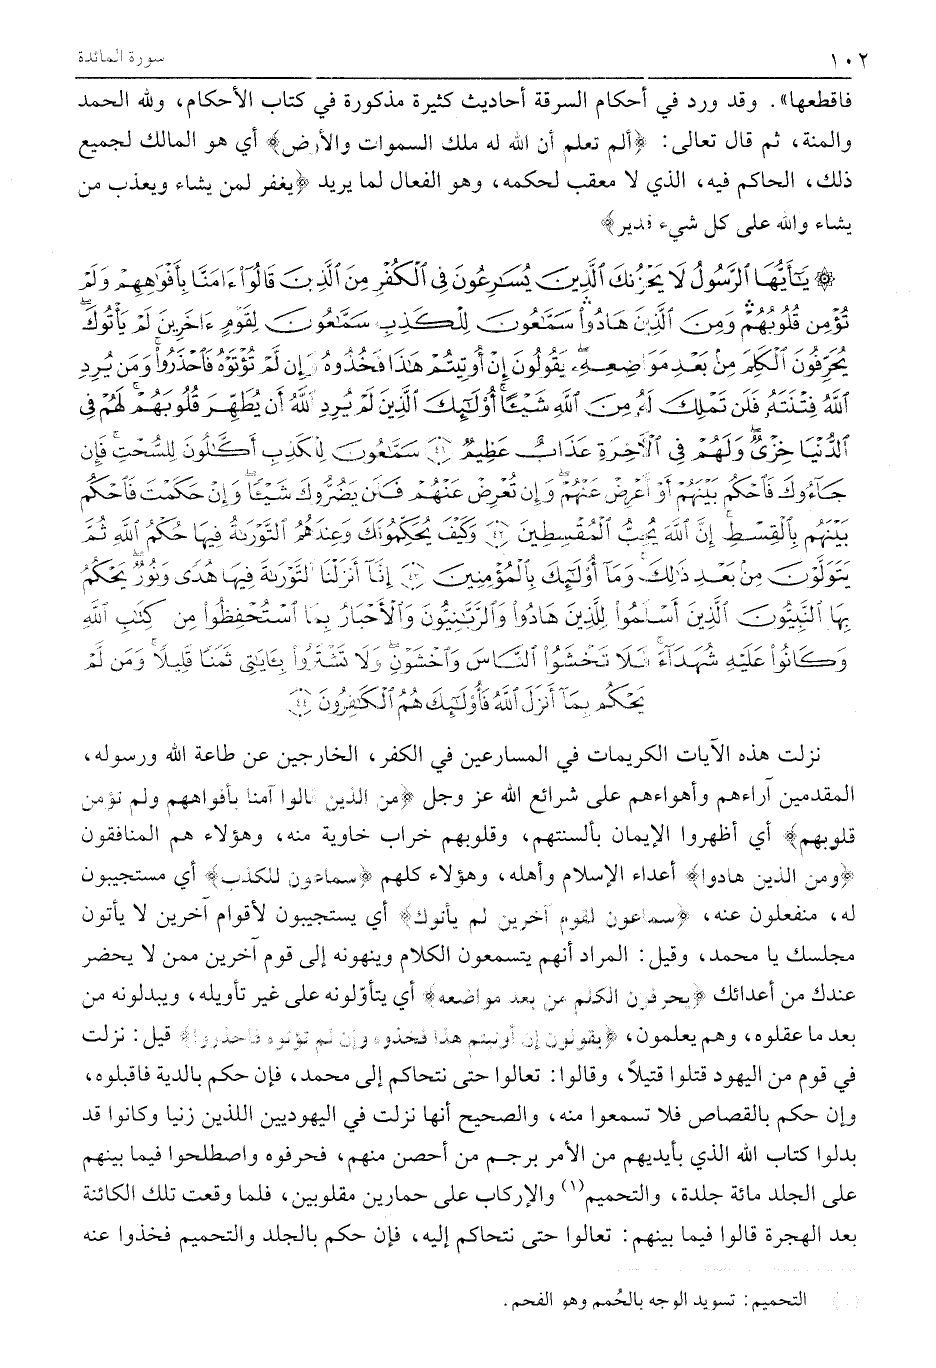 ١٠٢ سورة المائدة
فاقطعها». وقد ورد في أحكام السرقة أحاديث كثيرة مذكورة في كتاب الأحكام، ولله الحمد
والمنة، ثم قال تعالى: ﴿ألم تعلم أن الله له ملك السموات والأرض﴾ أي هو المالك لجميع
ذلك، الحاكم فيه، الذي لا معقب لحكمه، وهو الفعال لما يريد ﴿يغفر لمن يشاء ويعذب من
يشاء والله على كل شيء قدير﴾
۞ يَٰٓأَيُّهَا ٱلرَّسُولُ لَا يَحْزُنكَ ٱلَّذِينَ يُسَٰرِعُونَ فِى ٱلْكُفْرِ مِنَ ٱلَّذِينَ قَالُوٓا۟ ءَامَنَّا بِأَفْوَٰهِهِمْ وَلَمْ
تُؤْمِن قُلُوبُهُمْ ۛ وَمِنَ ٱلَّذِينَ هَادُوا۟ ۛ سَمَّٰعُونَ لِلْكَذِبِ سَمَّٰعُونَ لِقَوْمٍ ءَاخَرِينَ لَمْ يَأْتُوكَ ۖ
يُحَرِّفُونَ ٱلْكَلِمَ مِنۢ بَعْدِ مَوَاضِعِهِۦ ۖ يَقُولُونَ إِنْ أُوتِيتُمْ هَٰذَا فَخُذُوهُ وَإِن لَّمْ تُؤْتَوْهُ فَٱحْذَرُوا۟ ۚ وَمَن يُرِدِ
ٱللَّهُ فِتْنَتَهُۥ فَلَن تَمْلِكَ لَهُۥ مِنَ ٱللَّهِ شَيْـًٔا ۚ أُو۟لَٰٓئِكَ ٱلَّذِينَ لَمْ يُرِدِ ٱللَّهُ أَن يُطَهِّرَ قُلُوبَهُمْ ۚ لَهُمْ فِى
ٱلدُّنْيَا خِزْىٌ ۖ وَلَهُمْ فِى ٱلْءَاخِرَةِ عَذَابٌ عَظِيمٌ ٤١ سَمَّٰعُونَ لِلْكَذِبِ أَكَّٰلُونَ لِلسُّحْتِ ۚ فَإِن
جَآءُوكَ فَٱحْكُم بَيْنَهُمْ أَوْ أَعْرِضْ عَنْهُمْ ۖ وَإِن تُعْرِضْ عَنْهُمْ فَلَن يَضُرُّوكَ شَيْـًٔا ۖ وَإِنْ حَكَمْتَ فَٱحْكُم
بَيْنَهُم بِٱلْقِسْطِ ۚ إِنَّ ٱللَّهَ يُحِبُّ ٱلْمُقْسِطِينَ ٤٢ وَكَيْفَ يُحَكِّمُونَكَ وَعِندَهُمُ ٱلتَّوْرَىٰةُ فِيهَا حُكْمُ ٱللَّهِ ثُمَّ
يَتَوَلَّوْنَ مِنۢ بَعْدِ ذَٰلِكَ ۚ وَمَآ أُو۟لَٰٓئِكَ بِٱلْمُؤْمِنِينَ ٤٣ إِنَّآ أَنزَلْنَا ٱلتَّوْرَىٰةَ فِيهَا هُدًى وَنُورٌ ۚ يَحْكُمُ
بِهَا ٱلنَّبِيُّونَ ٱلَّذِينَ أَسْلَمُوا۟ لِلَّذِينَ هَادُوا۟ وَٱلرَّبَّٰنِيُّونَ وَٱلْأَحْبَارُ بِمَا ٱسْتُحْفِظُوا۟ مِن كِتَٰبِ ٱللَّهِ
وَكَانُوا۟ عَلَيْهِ شُهَدَآءَ ۚ فَلَا تَخْشَوُا۟ ٱلنَّاسَ وَٱخْشَوْنِ وَلَا تَشْتَرُوا۟ بِـَٔايَٰتِى ثَمَنًا قَلِيلًا ۚ وَمَن لَّمْ
يَحْكُم بِمَآ أَنزَلَ ٱللَّهُ فَأُو۟لَٰٓئِكَ هُمُ ٱلْكَٰفِرُونَ ٤٤
نزلت هذه الآيات الكريمات في المسارعين في الكفر، الخارجين عن طاعة الله ورسوله،
المقدمين آراءهم وأهواءهم على شرائع الله عز وجل ﴿من الذين قالوا آمنا بأفواههم ولم تؤمن
قلوبهم﴾ أي أظهروا الإيمان بألسنتهم، وقلوبهم خراب خاوية منه، وهؤلاء هم المنافقون
﴿ومن الذين هادوا﴾ أعداء الإسلام وأهله، وهؤلاء كلهم ﴿سماعون للكذب﴾ أي مستجيبون
له، منفعلون عنه، ﴿سماعون لقوم آخرين لم يأتوك﴾ أي يستجيبون لأقوام آخرين لا يأتون
مجلسك يا محمد، وقيل: المراد أنهم يتسمعون الكلام وينهونه إلى قوم آخرين ممن لا يحضر
عندك من أعدائك ﴿يحرفون الكلم من بعد مواضعه﴾ أي يتأوّلونه على غير تأويله، ويبدلونه من
بعد ما عقلوه، وهم يعلمون، ﴿يقولون إن أوتيتم هذا فخذوه وإن لم تؤتوه فاحذروا﴾ قيل: نزلت
في قوم من اليهود قتلوا قتيلاً، وقالوا: تعالوا حتى نتحاكم إلى محمد، فإن حكم بالدية فاقبلوه،
وإن حكم بالقصاص فلا تسمعوا منه، والصحيح أنها نزلت في اليهوديين اللذين زنيا وكانوا قد
بدلوا كتاب الله الذي بأيديهم من الأمر برجم من أحصن منهم، فحرفوه واصطلحوا فيما بينهم
على الجلد مائة جلدة، والتحميم(١) والإركاب على حمارين مقلوبين، فلما وقعت تلك الكائنة
بعد الهجرة قالوا فيما بينهم: تعالوا حتى نتحاكم إليه، فإن حكم بالجلد والتحميم فخذوا عنه
التحميم: تسويد الوجه بالحُمم وهو الفحم.